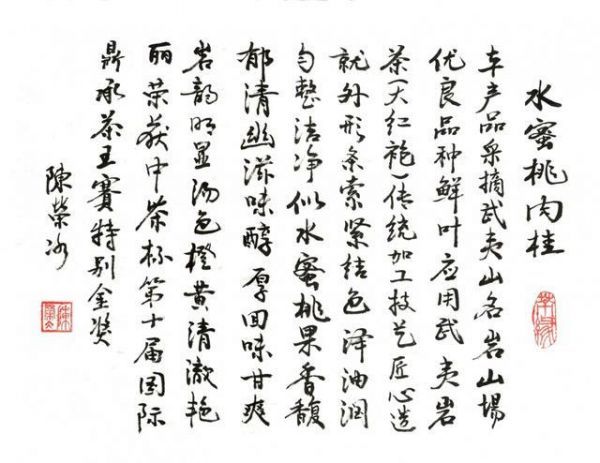 水蜜桃肉桂
本产品采摘武夷山名岩山場
优良品种鲜叶应用武夷岩
茶(大红袍)传统加工技艺匠心造
就外形条索紧结色泽油润
匀整洁净似水蜜桃果香馥
郁清幽滋味醇厚回味甘爽
岩韵明显汤色橙黄清澈艳
丽荣获中茶杯第十届国际
鼎承茶王賽特别金奖
陳榮冰